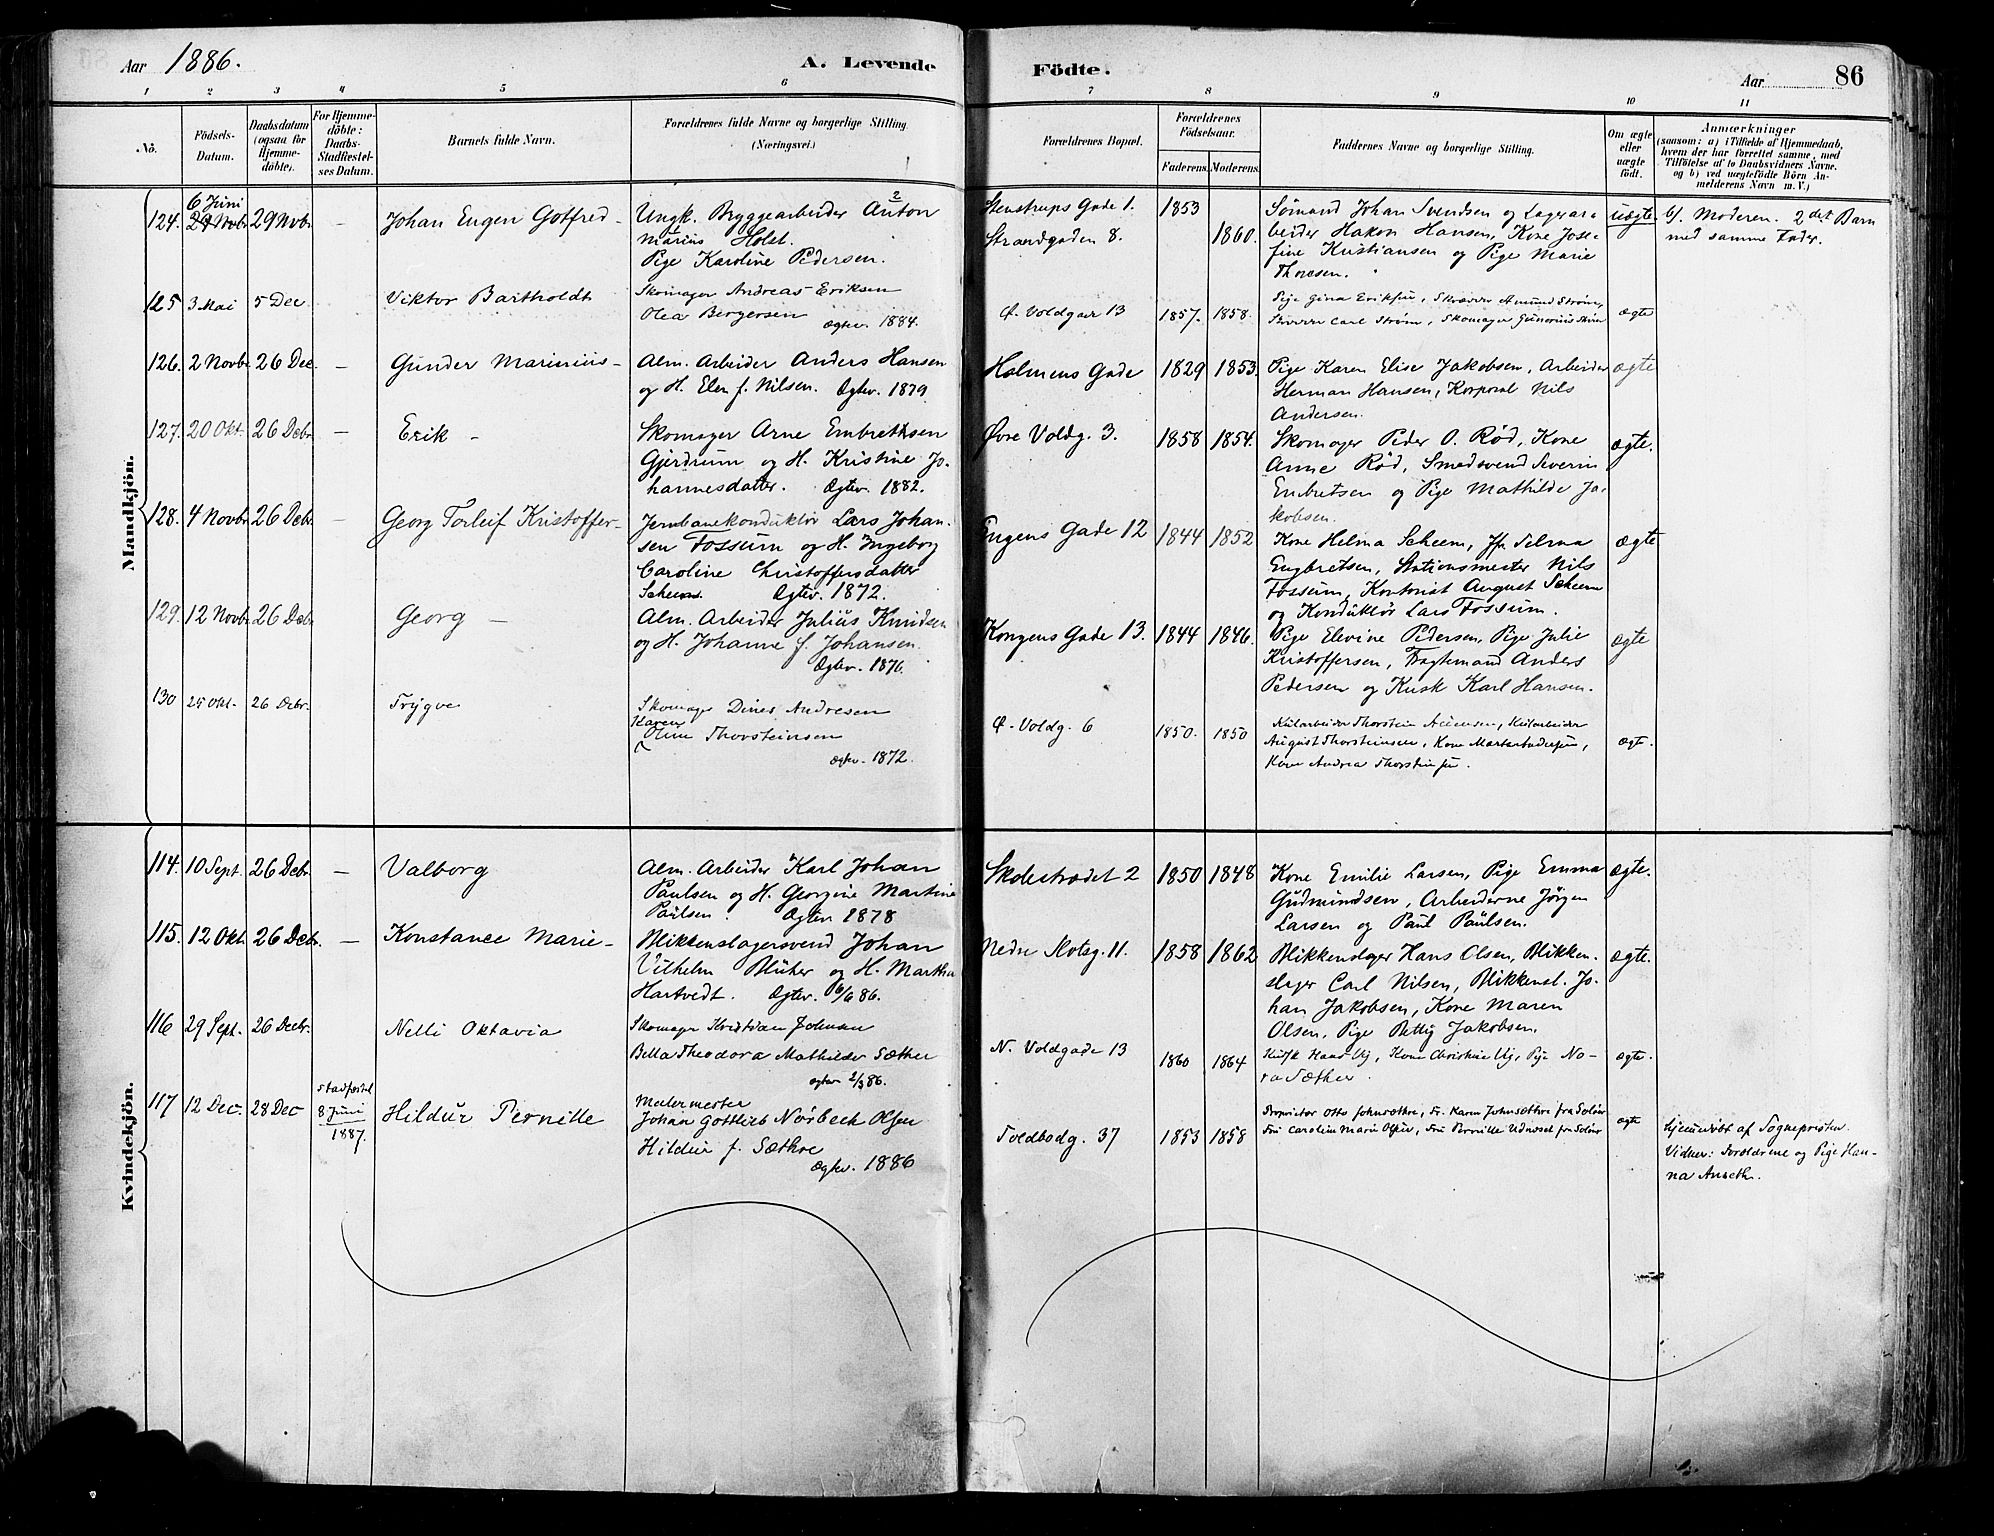 Aar 1886.
A. Levende
Födte.
Aar
86
1 2 3 4 5 6
7 8 9 10 11
No.
Födsels-Datum.
Daabsdatum (ogsaa for Hjemme-döbte).
For Hjemme-döbte: Daabs-Stadfæstel-ses Datum.
Barnets fulde Navn.
Forældrenes fulde Navne og borgerlige Stilling.
(Næringsvei.)
Forældrenes Bopæl.
Forældrenes Födselsaar.
Faderens. Moderens.
Faddernes Navne og borgerlige Stilling.
Om ægte eller uægte födt.
Anmærkninger
(saasom: a) i Tilfælde af Hjemmedaab, hvem der har forrettet samme, med Tilföielse af to Daabsvidners Navne. og b) ved uægtefödte Börn An-melderens Navn m. V.)
Mandkjön.
6 Juni
124. 29 Novbr. 29 Novbr. – Johan Eugen Gotfred – Ungk. Bryggearbeider Anton
2
Marius Holst.
Pige Karoline Pedersen.
Stenstrups Gade 1. 1853
Strandgaden 8. 1860.
Sömand Johan Svendsen og Lagerar-
beider Hakon Hansen, Kone Jose-
fine Kristiansen og Pige Marie
Thoresen.
uægte.
b/. Moderen. 2det Barn
med samme Fader.
125 3 Mai 5 Dec Viktor Bartholdt Skomager Andreas Eriksen
Olea Bergersen
Ægtev. 1884.
Ø. Voldgade 13 1857. 1858.
Pige Gina Eriksen, Skræder Amund Strøm,
Carl Strøm, Skomager
ægte
126. 2 Novbr. 26 Dec. – Gunder Marinius – Alm. Arbeider Anders Hansen
og H. Elen f. Nilsen. Ægtev. 1879.
Holmens Gade 1829 1853.
Pige Karen Elise Jakobsen, Arbeider
Herman Hansen, Korporal Nils
Andersen.
ægte
127. 20 Okt. 26 Debr. – Erik – Skomager Arne Embrethsen
Gjerdrum og H. Kristine Jo-
hannesdatter. Ægtev. 1882.
Øvre Voldg. 3. 1858 1854.
Skomager Peder O. Rød, Kone
Anne Rød, Smedsvend Severin
Embretsen og Pige Mathilde Ja-
kobsen.
ægte.
128. 4 Novbr. 26 Debr. – Georg Torleif Kristoffer – Jernbanekonduktör Lars Johan-
sen Fossum og H. Ingeborg
Caroline Christoffersdatter
Ægtev. 1872.
Engens Gade 12 1844 1852
Kone Helma Scheen, Jfr. Selma
Engbretsen, Stationsmester Nils
Fossum, Kontorist August Scheen
og Konduktör Lars Fossum.
ægte
129. 12 Novbr. 26 Debr. Georg – Alm. Arbeider Julius Knudsen
og H. Johanne f. Johansen.
Ægtev. 1876.
Kongens Gade 13. 1844 1846.
Pige Elevine Pedersen, Pige Julie
Kristoffersen, Fragtemand Anders
Pedersen og Kusk Karl Hansen.
ægte
130 25 Okt. 26 Debr. Trygve Skomager Dines Andresen
Karen
Oline Thorsteinsen
Ægtev. 1872.
Ø. Voldg. 6 1850. 1850
Thorstein
August Thorsteinsen, Kone
Kone Andrea Thorsteinsen.
ægt.
Kvindekjön.
114. 10 Sept. 26 Debr. – Valborg Alm. Arbeider Karl Johan
Paulsen og H. Georgine Martine
Paulsen. Ægtev. 1878
Skolestrædet 2 1850 1848
Kone Emilie Larsen, Pige Emma
Gudmundsen, Arbeiderne Jörgen
Larsen og Paul Paulsen.
ægte.
115. 12 Okt. 26 Debr. – Konstance Marie – Blikkenslagersvend Johan
Vilhelm Blüher og H. Martha
Hartvedt. Ægtev. 6/6 86.
Nedre Slotsg. 11. 1858 1862
Blikkenslager Hans Olsen, Blikken-
slager Carl Nilsen, Blikkensl. Jo-
han Jakobsen, Kone Maren
Olsen, Pige Betty Jakobsen.
ægte.
116 29 Sept. 26 Decbr. Nelli Oktavia Skomager Kristian Johnsen
Bella Theodora Mathilde Sæther
ægtev 2/3 86.
N. Voldgade 13 1860 1864
Kusk Hans Vig, Kone Christine Vig, Pige No-
ra Sæther.
ægte.
117 12 Dec. 28 Dec stadfæstet
8 Juni
1887.
Hildur Pernille Malermester
Johan Gottlieb Norbech Olsen
Hildur f. Sæthre
Ægtev. 1886
Toldbodg. 37 1853 1858
Proprietær Otto Johnsæthre, Fr. Karen Johnsæthre fra Solør
Fru Caroline Marie Olsen, Fru Pernille Udnæset fra Solør
ægte
hjemmedøbt af Sognepræsten.
Vidner: Forældrene og Pige Han-
na Anseth.